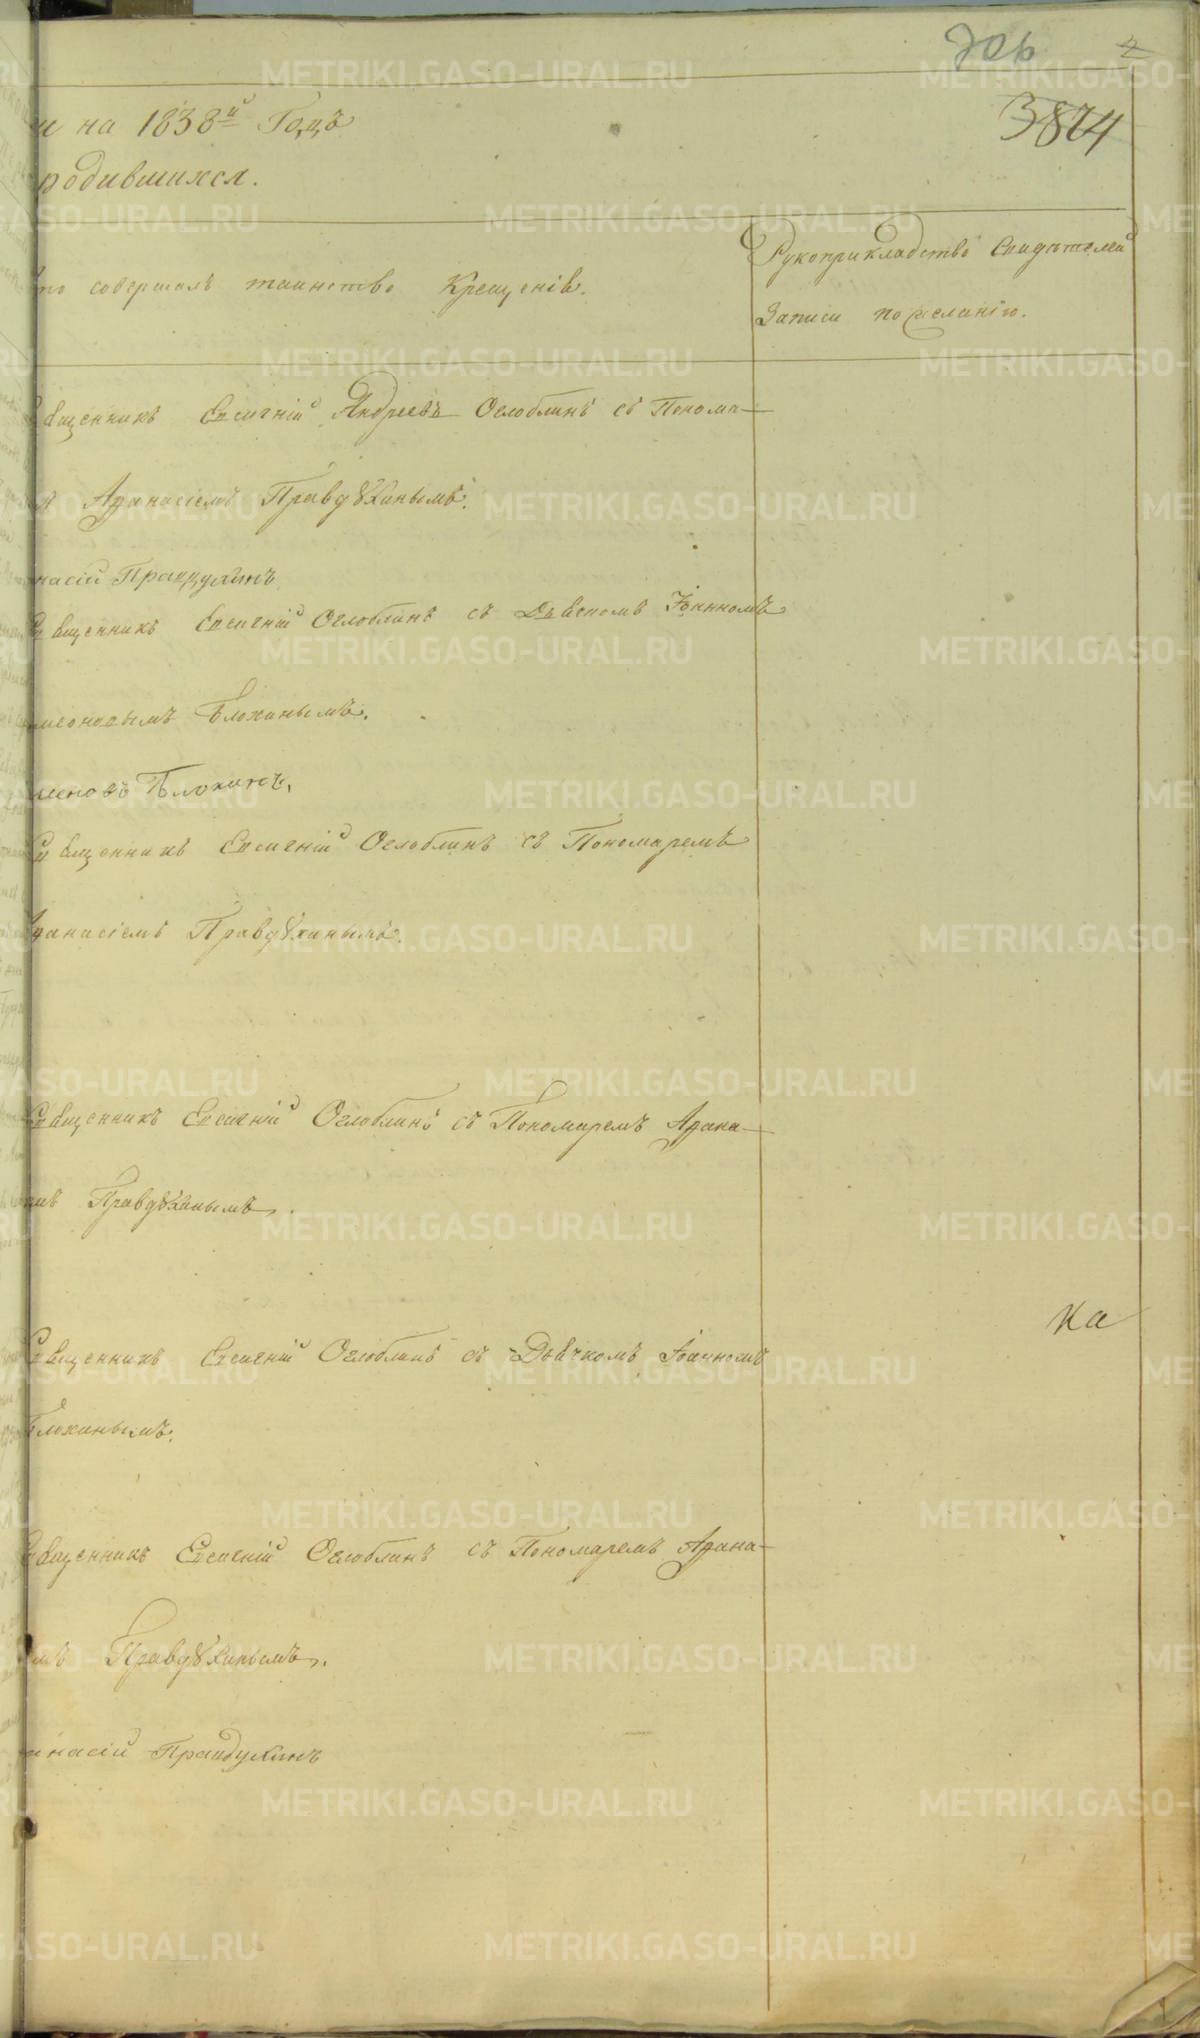 706
3874
и на 1838й Годъ
родившихся.
то совершалъ таинство Крещенія.
Рукоприкладство Свидѣтелей
Записи по желанію.
священникъ Евсигній Андреевъ Оглоблинъ съ Понома-
я Афанасіемъ Правдꙋхинымъ.
насій Правдухинъ
Священникъ Евсигній Оглоблинъ съ Дьячкомъ Іоанномъ
меоновымъ Блохинымъ.
меновъ Блохинъ.
Священникъ Евсигній Оглоблинъ съ Пономаремъ
фанасіемъ Правдꙋхинымъ.
Священникъ Евсигній Оглоблинъ съ Пономаремъ Афана-
мъ Правдꙋхинымъ.
Ка
Священникъ Евсигній Оглоблинъ съ Дьячкомъ Іоанномъ
Блохинымъ.
Священникъ Евсигній Оглоблинъ съ Пономаремъ Афана-
мъ Правдꙋхинымъ.
анасій Правдухинъ
METRIKI.GASO-URAL.RU